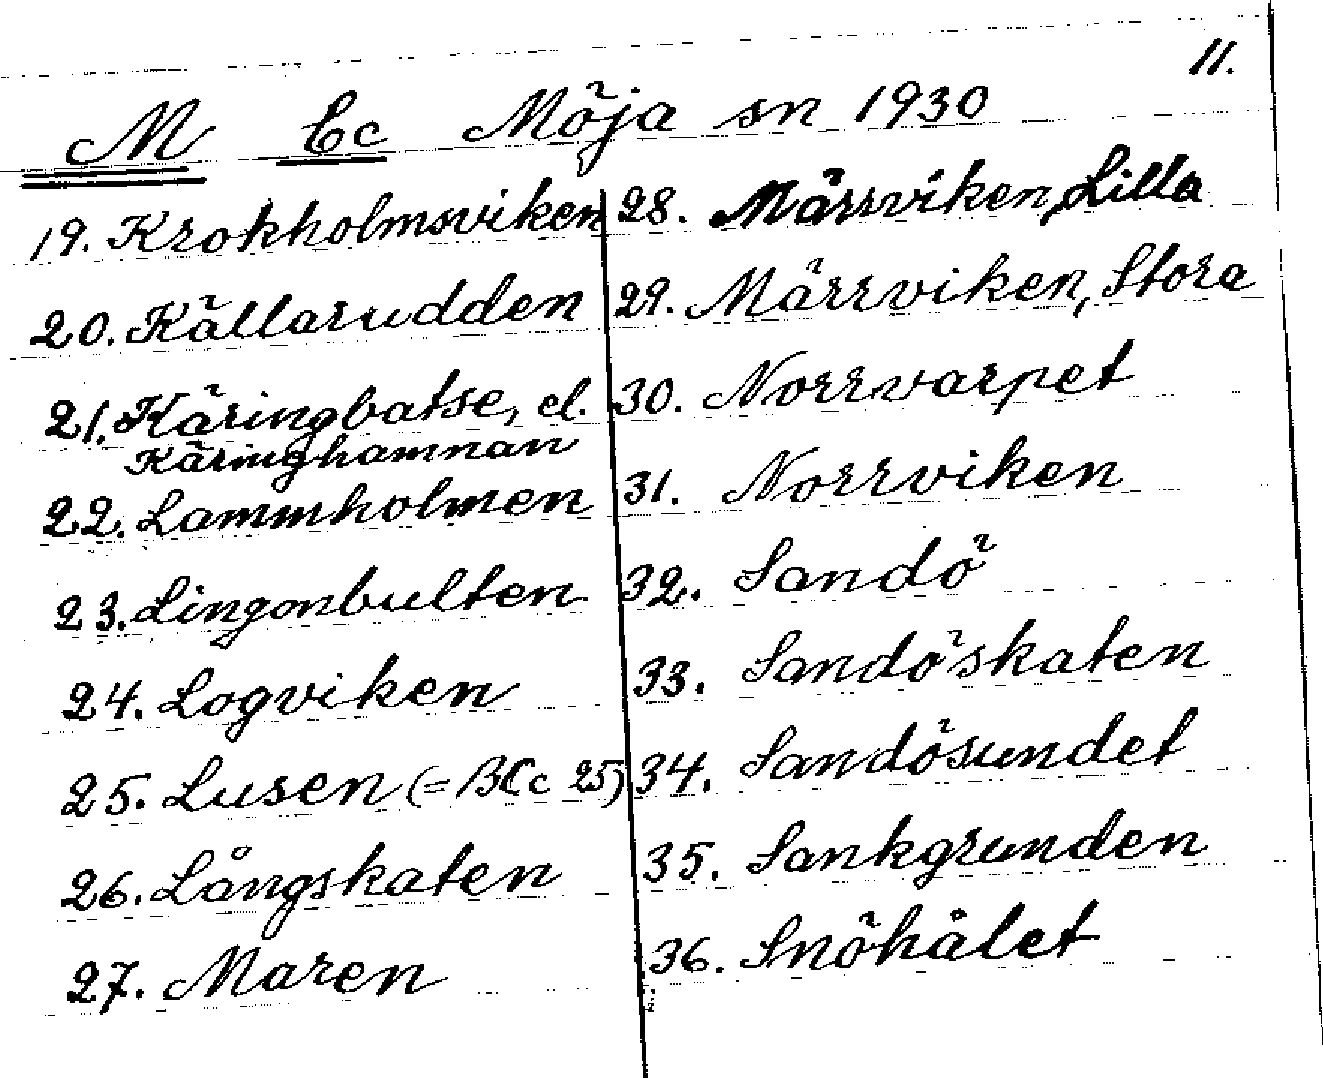 11.
M Cc Möja sn 1930
19. Krokholmsviken
20. Källarudden
21. Käringbatse, el.
Käringhamnan
22. Lammholmen
23. Lingonbulten
24. Logviken
25. Lusen (= BCc 25)
26. Långskaten
27. Maren
28. Märrviken, Lilla
29. Märrviken, Stora
30. Norrvarpet
31. Norrviken
32. Sandö
33. Sandöskaten
34. Sandösundet
35. Sankgrunden
36. Snöhålet